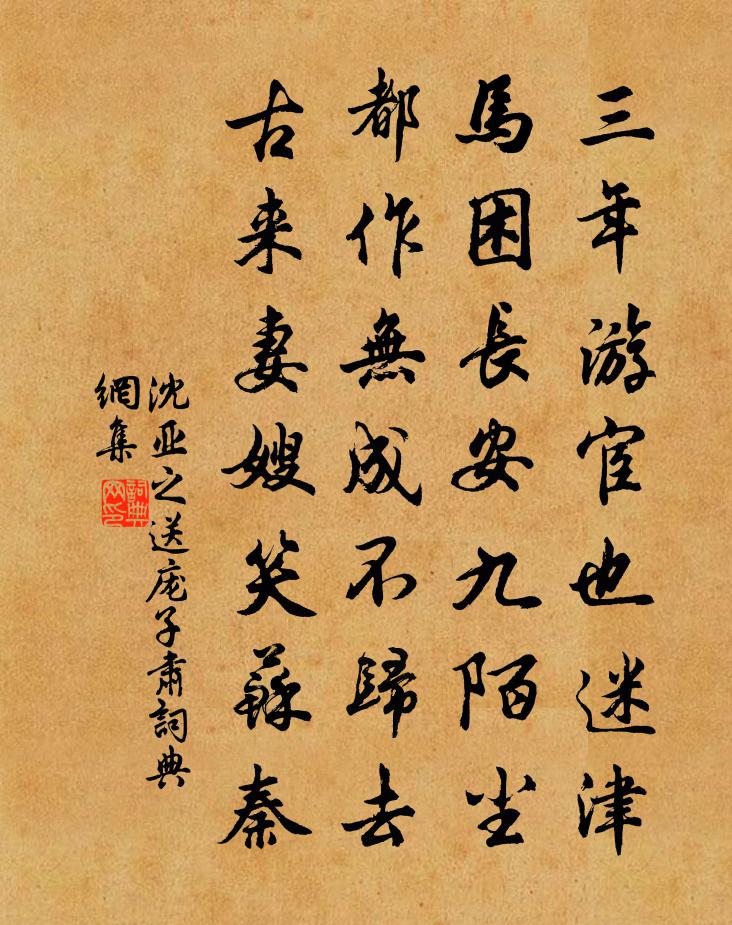 三年游宦也迷津
馬困長安九陌尘
都作無成不歸去
古来妻嫂笑蘇秦
沈亚之送庞子肅詞典
網集
詞典
网印